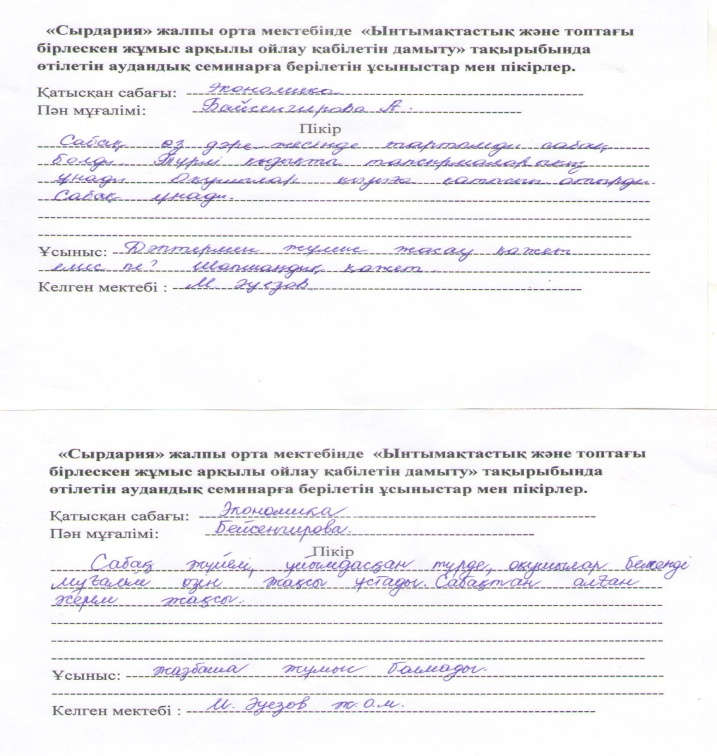 «Сырдария» жалпы орта мектебінде «Ынтымақтастық және топтағы
бірлескен жұмыс арқылы ойлау қабілетін дамыту» тақырыбында
өтілетін аудандық семинарға берілетін ұсыныстар мен пікірлер.
Қатысқан сабағы: Экономика
Пән мұғалімі: Байсенгирова А.
Пікір
Сабақ өз дәрежесінде тартымды сабақ
болды. Түрлі қызықты тапсырмалар
ұнады. Оқушылар қатесін
Сабақ ұнады.
Ұсыныс: Дәптермен жұмыс жасау қажет
емес пе? Шапшаңдық қажет.
Келген мектебі : М. Әуезов
«Сырдария» жалпы орта мектебінде «Ынтымақтастық және топтағы
бірлескен жұмыс арқылы ойлау қабілетін дамыту» тақырыбында
өтілетін аудандық семинарға берілетін ұсыныстар мен пікірлер.
Қатысқан сабағы: Экономика
Пән мұғалімі: Бейсенгирова.
Пікір
Сабақ жүйелі, ұйымдасқан түрде, оқушылар белсенді
мұғалім өзін жақсы ұстады. Сабақтан алған
әсерім жақсы.
Ұсыныс: жазбаша жұмыс болмады.
Келген мектебі : М. Әуезов ж.о.м.